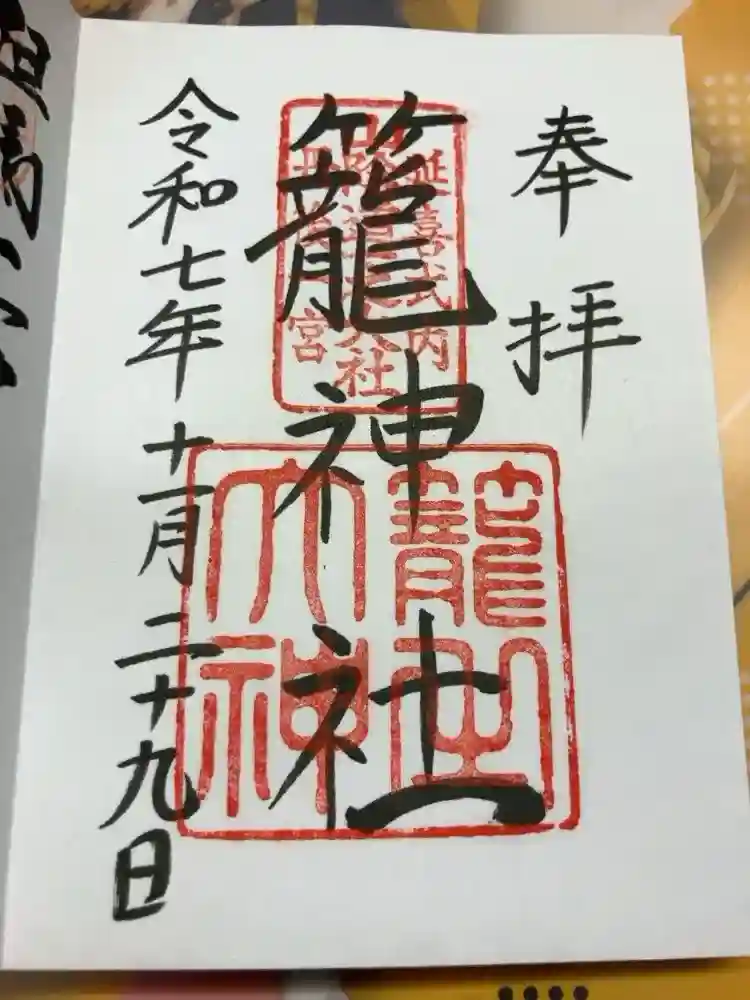 奉拝
延喜式内
籠神社
籠之大神
令和七年十一月二十九日